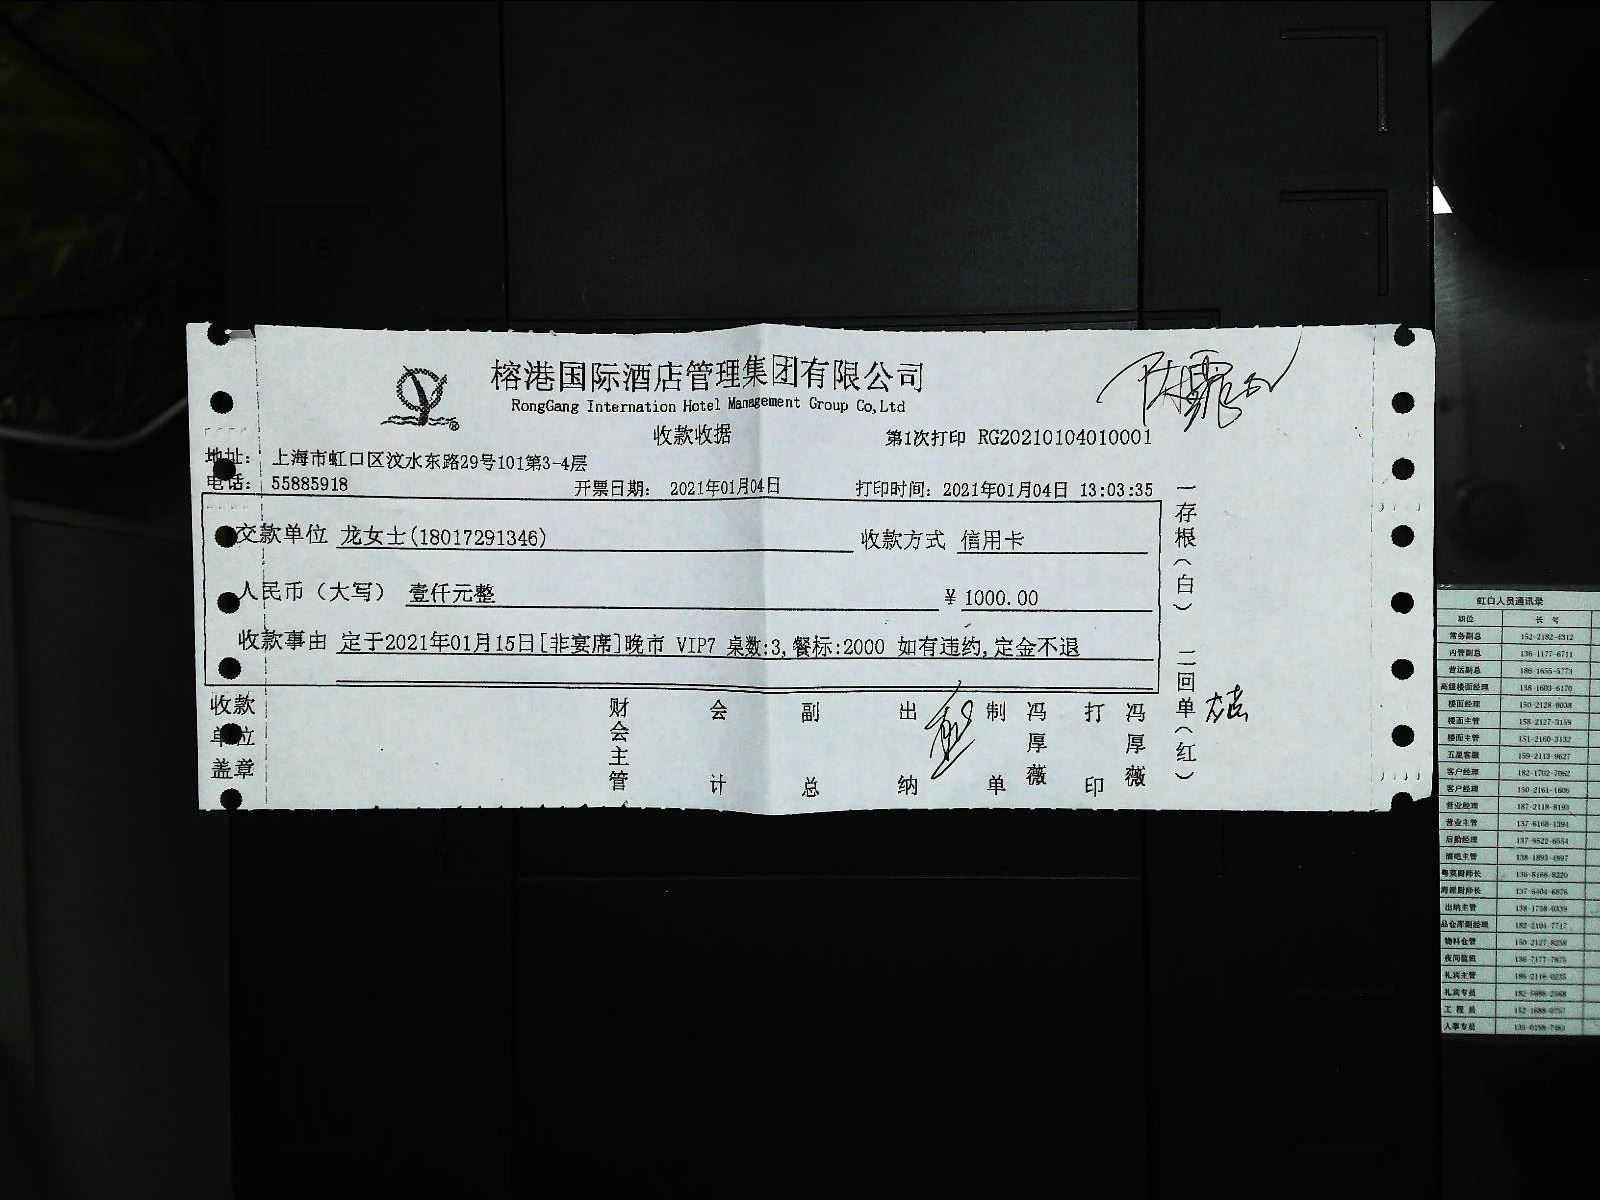 榕港国际酒店管理集团有限公司
RongGang Internation Hotel Management Group Co,Ltd
收款收据
第1次打印 RG20210104010001
地址： 上海市虹口区汶水东路29号101第3-4层
电话： 55885918
开票日期： 2021年01月04日
打印时间：2021年01月04日 13:03:35
交款单位 龙女士(18017291346)
收款方式 信用卡
人民币（大写） 壹仟元整
￥1000.00
收款事由 定于2021年01月15日[非宴席]晚市 VIP7 桌数:3,餐标:2000 如有违约,定金不退
收款单位盖章
财会主管
会计
副总
出纳
制单
冯厚薇
打印
冯厚薇
一存根（白） 二回单（红）
虹口人员通讯录
职位 长 号
常务副总 152-2182-4312
内管副总 136-1177-6711
营运副总 186-1655-5773
高级楼面经理 138-1603-6170
楼面经理 150-2128-8038
楼面主管 158-2127-3159
楼面主管 151-2160-3132
五星客服 159-2113-9627
客户经理 182-1702-7062
客户经理 150-2161-1606
营业经理 187-2118-8193
营业主管 137-6168-1394
后勤经理 137-9522-6554
酒吧主管 138-1893-4997
粤菜厨师长 136-8166-8220
海派厨师长 137-6404-6876
出纳主管 138-1758-0339
品仓库副经理
物料仓管 150-2127-8238
夜间值班
礼宾主管
礼宾专员
工 程 员
人事专员